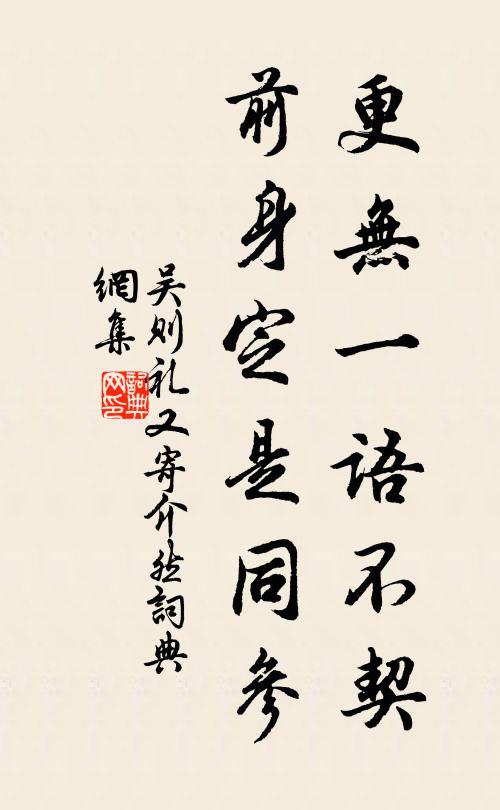 更無一語不契
前身定是同參
吴则礼又寄介然詞典
網集
詞典网印